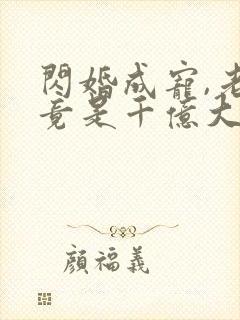 閃婚成寵,老
竟是千億大
顏福義